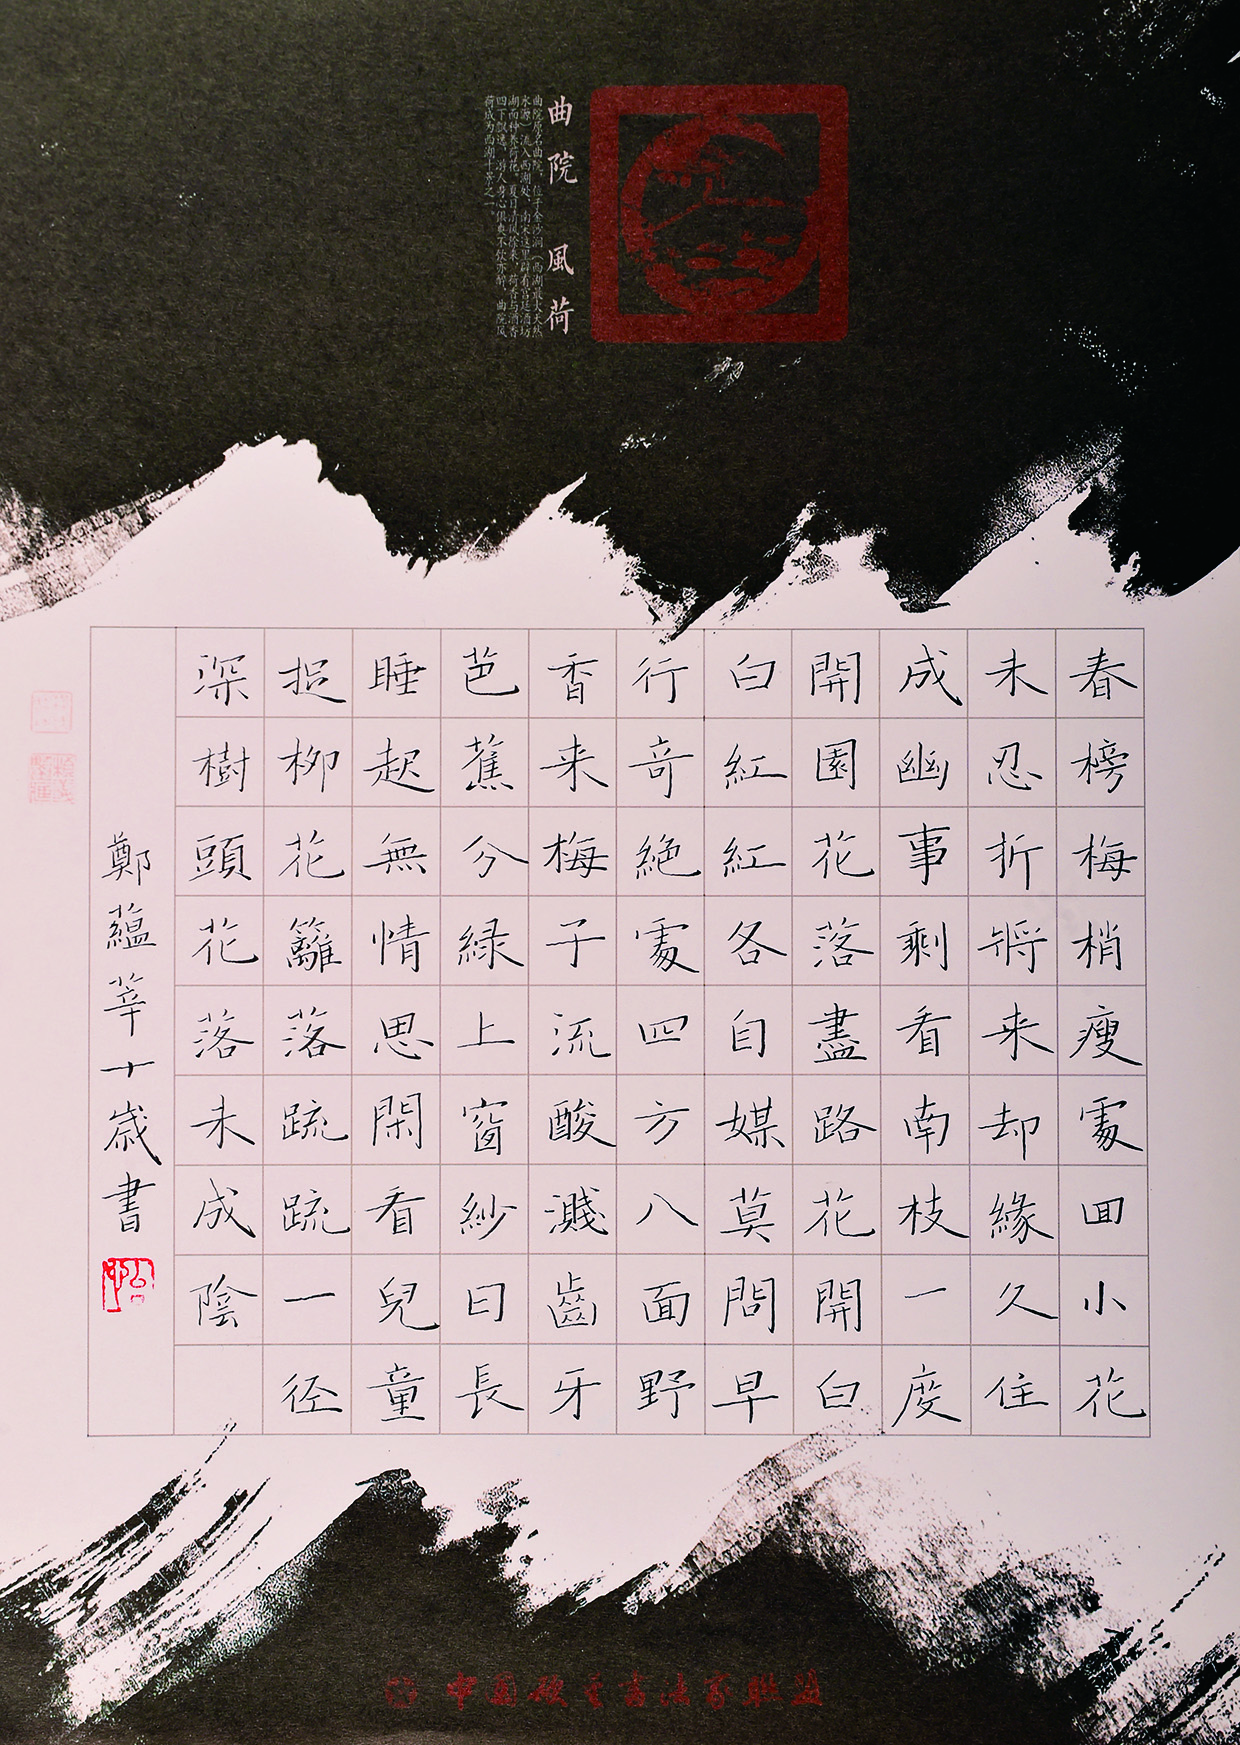 曲院 風荷
曲院原名曲院，位于金沙涧（西湖最大天然
水源）流入西湖处，南宋这里辟有宫廷酒坊
湖面种养荷花。夏日清风徐来，荷香与酒香
四下飘逸，游人身心俱爽不饮亦醉。曲院风
荷成为西湖十景之一。
春榜梅梢瘦處囬小花
未忍折將来却緣久住
成幽事剩看南枝一度
開園花落盡路花開白
白紅紅各自媒莫問早
行奇絶處四方八面野
香来梅子流酸濺齒牙
芭蕉分緑上窗紗日長
睡起無情思閑看兒童
捉柳花籬落疏疏一径
深樹頭花落未成陰
鄭蘊莘十歲書
中国硬笔书法家联盟